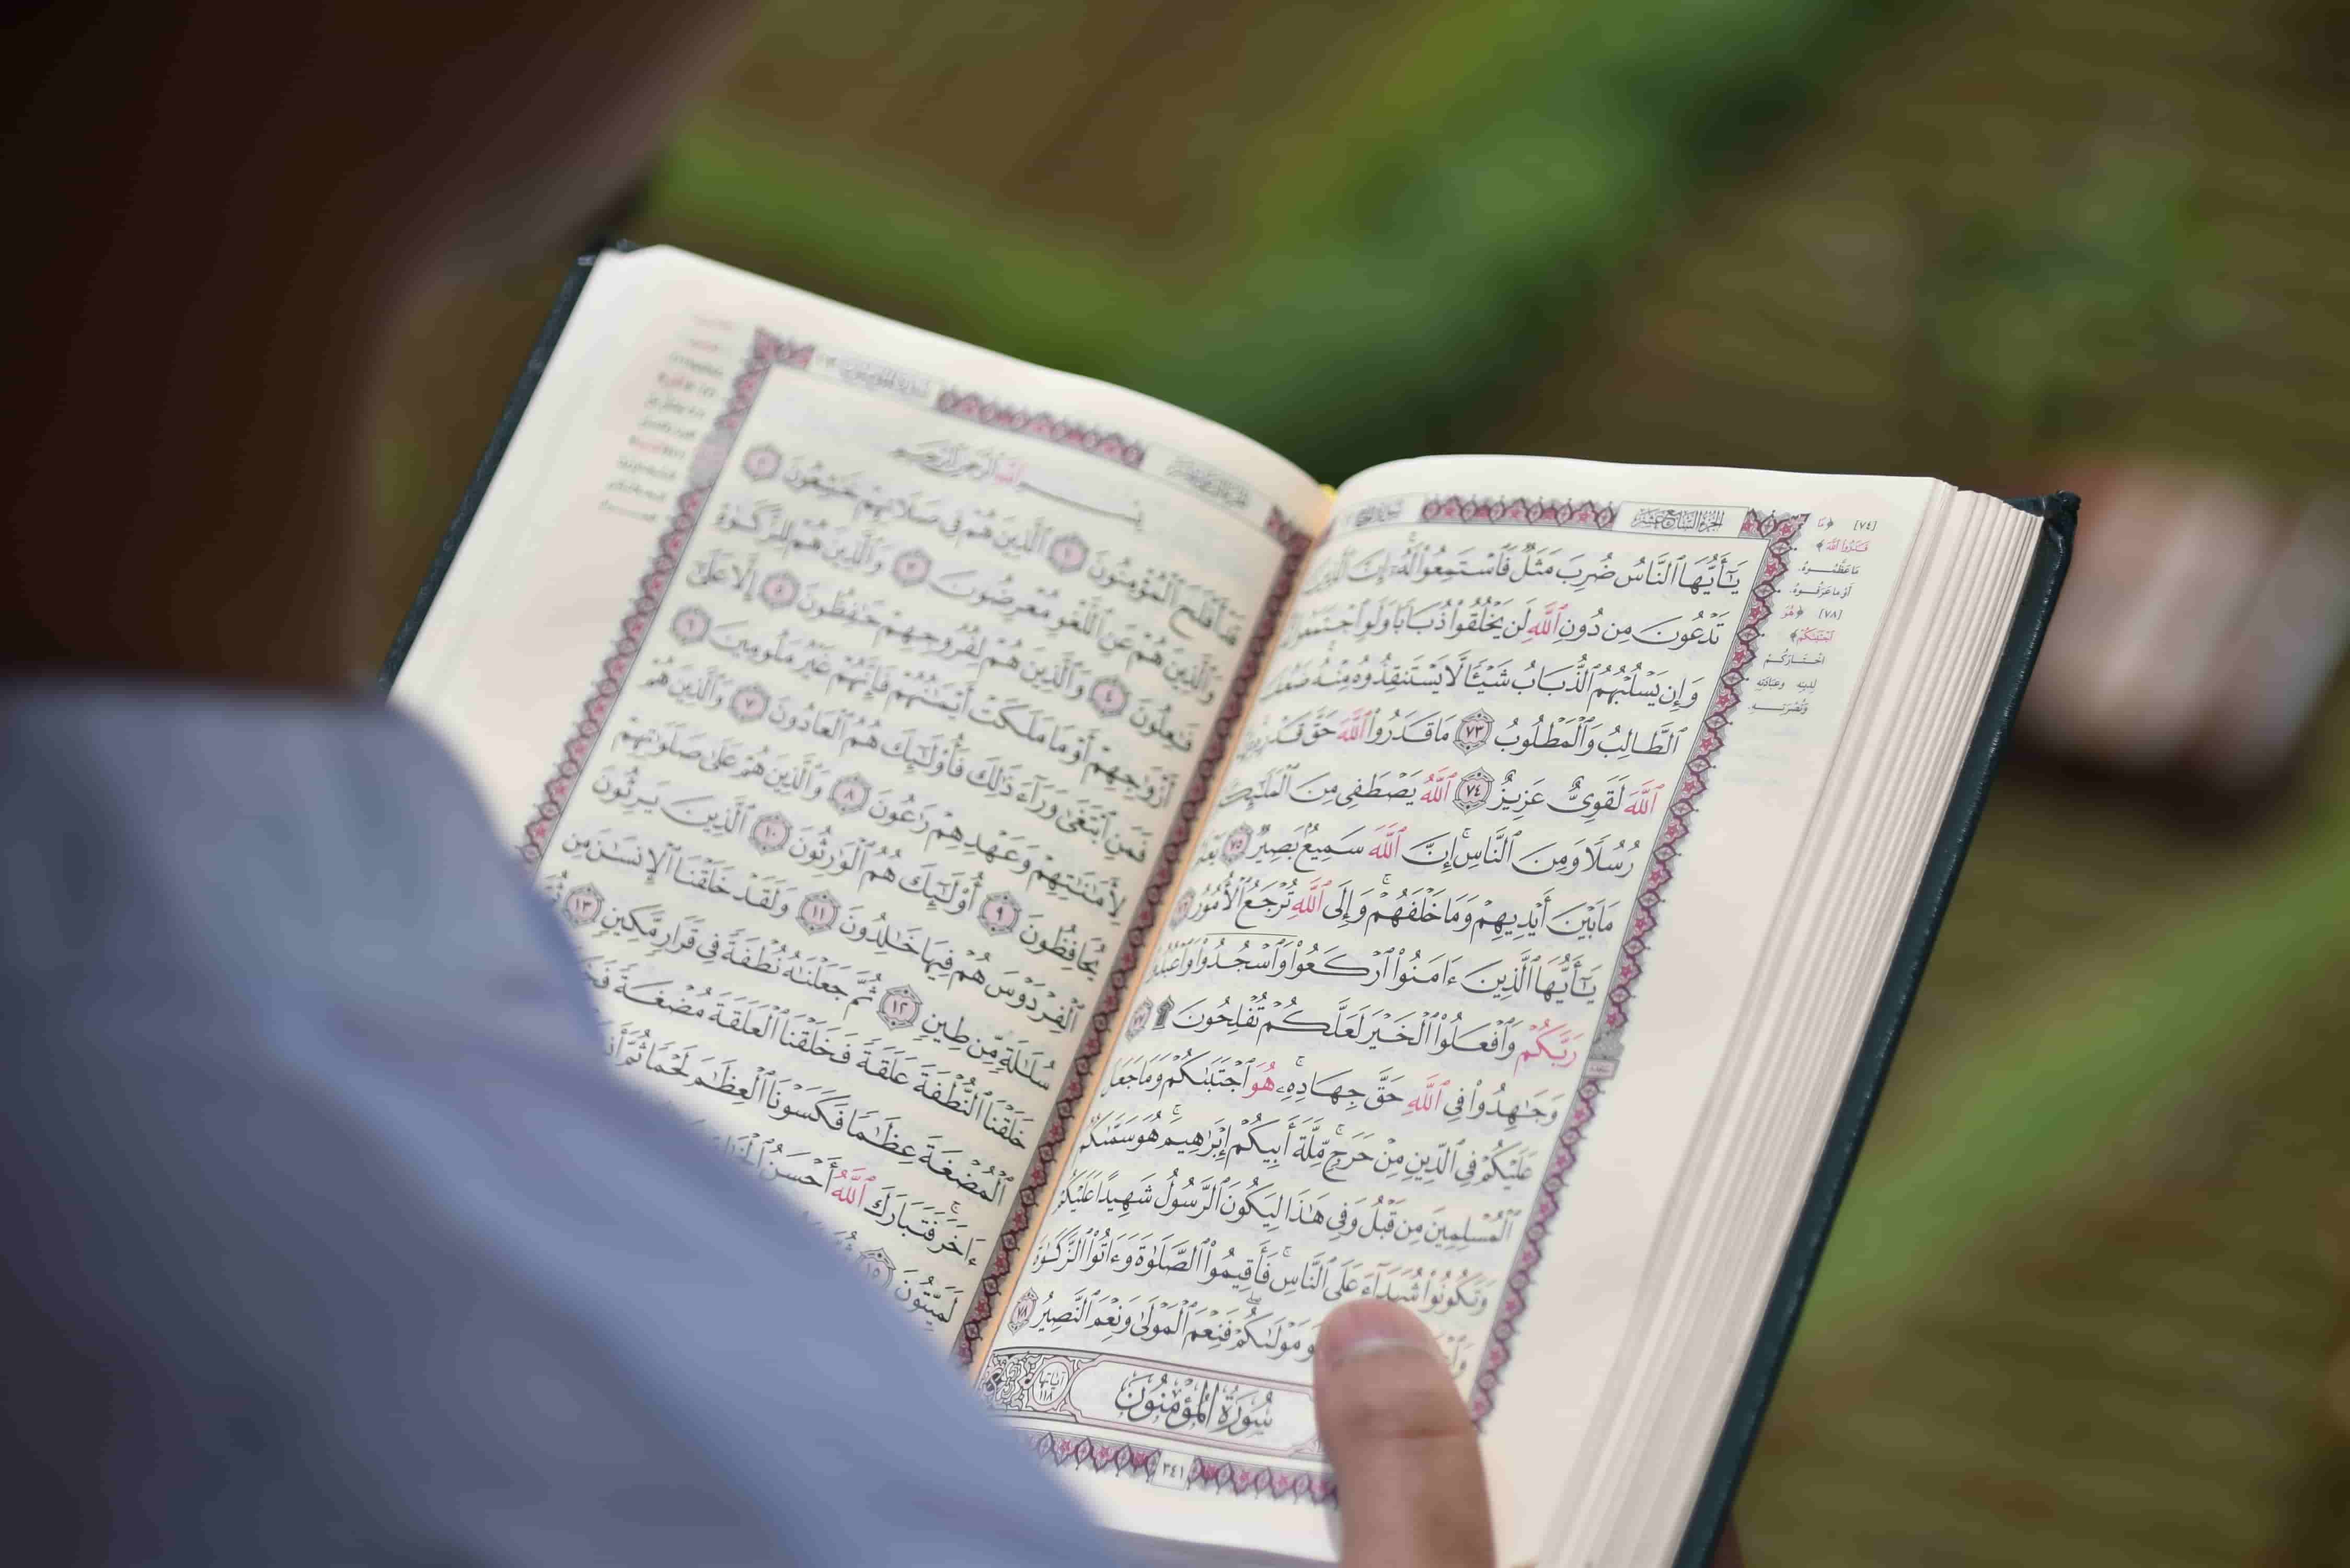 الجزء السابع عشر
يَـٰٓأَيُّهَا ٱلنَّاسُ ضُرِبَ مَثَلٌ فَٱسْتَمِعُوا۟ لَهُۥٓ ۚ إِنَّ ٱلَّذِينَ
تَدْعُونَ مِن دُونِ ٱللَّهِ لَن يَخْلُقُوا۟ ذُبَابًا وَلَوِ ٱجْتَمَعُوا۟
وَإِن يَسْلُبْهُمُ ٱلذُّبَابُ شَيْـًٔا لَّا يَسْتَنقِذُوهُ مِنْهُ ۚ ضَعُفَ
ٱلطَّالِبُ وَٱلْمَطْلُوبُ ٧٣ مَا قَدَرُوا۟ ٱللَّهَ حَقَّ قَدْرِهِۦٓ
ٱللَّهَ لَقَوِىٌّ عَزِيزٌ ٧٤ ٱللَّهُ يَصْطَفِى مِنَ ٱلْمَلَـٰٓئِكَةِ
رُسُلًا وَمِنَ ٱلنَّاسِ ۚ إِنَّ ٱللَّهَ سَمِيعٌۢ بَصِيرٌ ٧٥ يَعْلَمُ
مَا بَيْنَ أَيْدِيهِمْ وَمَا خَلْفَهُمْ ۗ وَإِلَى ٱللَّهِ تُرْجَعُ ٱلْأُمُورُ ٧٦
يَـٰٓأَيُّهَا ٱلَّذِينَ ءَامَنُوا۟ ٱرْكَعُوا۟ وَٱسْجُدُوا۟ وَٱعْبُدُوا۟
رَبَّكُمْ وَٱفْعَلُوا۟ ٱلْخَيْرَ لَعَلَّكُمْ تُفْلِحُونَ ۩ ٧٧
وَجَـٰهِدُوا۟ فِى ٱللَّهِ حَقَّ جِهَادِهِۦ ۚ هُوَ ٱجْتَبَىٰكُمْ وَمَا جَعَلَ
عَلَيْكُمْ فِى ٱلدِّينِ مِنْ حَرَجٍ ۚ مِّلَّةَ أَبِيكُمْ إِبْرَٰهِيمَ ۚ هُوَ سَمَّىٰكُمُ
ٱلْمُسْلِمِينَ مِن قَبْلُ وَفِى هَـٰذَا لِيَكُونَ ٱلرَّسُولُ شَهِيدًا عَلَيْكُمْ
وَتَكُونُوا۟ شُهَدَآءَ عَلَى ٱلنَّاسِ ۚ فَأَقِيمُوا۟ ٱلصَّلَوٰةَ وَءَاتُوا۟ ٱلزَّكَوٰةَ
مَوْلَىٰكُمْ ۖ فَنِعْمَ ٱلْمَوْلَىٰ وَنِعْمَ ٱلنَّصِيرُ ٧٨
سُورَةُ الْمُؤْمِنُونَ
آياتها ١١٨
٣٤١
[٧٤] ﴿مَا
قَدَرُوا۟ ٱللَّهَ﴾
مَا عَظَّمُوهُ.
أَوْ مَا عَرَفُوهُ.
[٧٨] ﴿هُوَ
ٱجْتَبَىٰكُمْ﴾
اخْتَارَكُمْ
لِدِينِهِ وَعِبَادَتِهِ
وَنُصْرَتِهِ
بِسْمِ ٱللَّهِ ٱلرَّحْمَـٰنِ ٱلرَّحِيمِ
قَدْ أَفْلَحَ ٱلْمُؤْمِنُونَ ١ ٱلَّذِينَ هُمْ فِى صَلَاتِهِمْ خَـٰشِعُونَ ٢
وَٱلَّذِينَ هُمْ عَنِ ٱللَّغْوِ مُعْرِضُونَ ٣ وَٱلَّذِينَ هُمْ لِلزَّكَوٰةِ
فَـٰعِلُونَ ٤ وَٱلَّذِينَ هُمْ لِفُرُوجِهِمْ حَـٰفِظُونَ ٥ إِلَّا عَلَىٰٓ
أَزْوَٰجِهِمْ أَوْ مَا مَلَكَتْ أَيْمَـٰنُهُمْ فَإِنَّهُمْ غَيْرُ مَلُومِينَ ٦
فَمَنِ ٱبْتَغَىٰ وَرَآءَ ذَٰلِكَ فَأُو۟لَـٰٓئِكَ هُمُ ٱلْعَادُونَ ٧ وَٱلَّذِينَ هُمْ
لِأَمَـٰنَـٰتِهِمْ وَعَهْدِهِمْ رَٰعُونَ ٨ وَٱلَّذِينَ هُمْ عَلَىٰ صَلَوَٰتِهِمْ
يُحَافِظُونَ ٩ أُو۟لَـٰٓئِكَ هُمُ ٱلْوَٰرِثُونَ ١٠ ٱلَّذِينَ يَرِثُونَ
ٱلْفِرْدَوْسَ هُمْ فِيهَا خَـٰلِدُونَ ١١ وَلَقَدْ خَلَقْنَا ٱلْإِنسَـٰنَ مِن
سُلَـٰلَةٍ مِّن طِينٍ ١٢ ثُمَّ جَعَلْنَـٰهُ نُطْفَةً فِى قَرَارٍ مَّكِينٍ ١٣ ثُمَّ
خَلَقْنَا ٱلنُّطْفَةَ عَلَقَةً فَخَلَقْنَا ٱلْعَلَقَةَ مُضْغَةً
ٱلْمُضْغَةَ عِظَـٰمًا فَكَسَوْنَا ٱلْعِظَـٰمَ لَحْمًا ثُمَّ
ءَاخَرَ ۚ فَتَبَارَكَ ٱللَّهُ أَحْسَنُ
لَمَيِّتُونَ ١٥